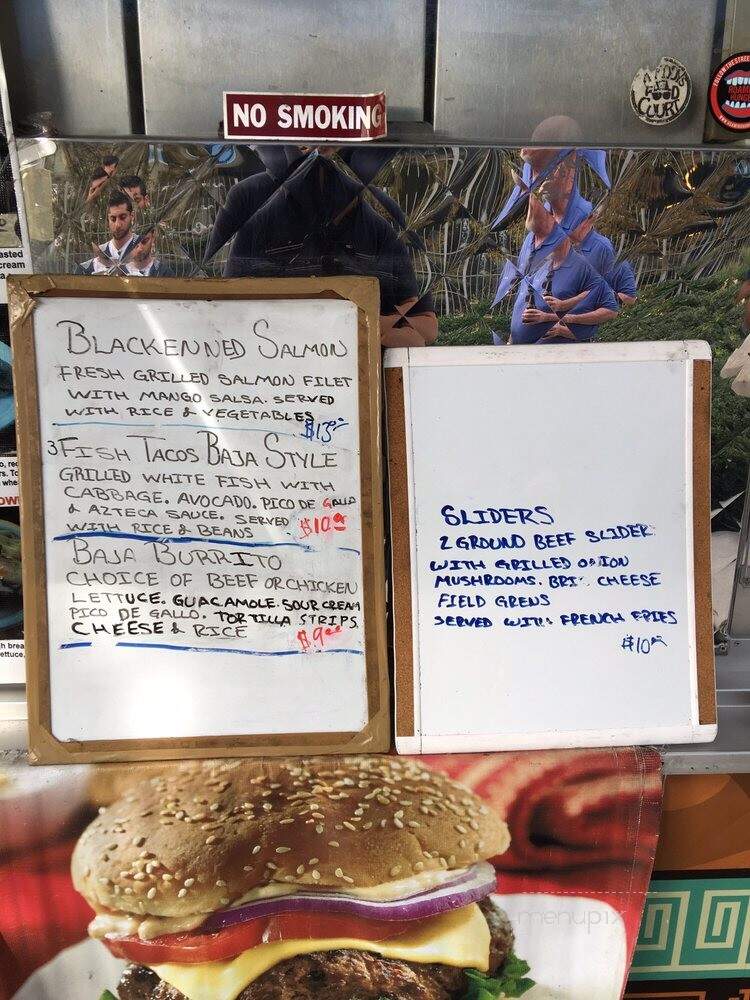 NO SMOKING
FOOD
COURT
FOLLOW THE STREET
ROAMING
HUNGER
asted
cream
BLACKENNED SALMON
FRESH GRILLED SALMON FILET
WITH MANGO SALSA. SERVED
WITH RICE & VEGETABLES
$13
3 FISH TACOS BAJA STYLE
GRILLED WHITE FISH WITH
CABBAGE. AVOCADO. PICO DE GALLO
& AZTECA SAUCE. SERVED
WITH RICE & BEANS
$10.00
BAJA BURRITO
CHOICE OF BEEF OR CHICKEN
LETTUCE. GUACAMOLE. SOUR CREAM
PICO DE GALLO. TORTILLA STRIPS
CHEESE & RICE
$9.00
SLIDERS
2 GROUND BEEF SLIDER
WITH GRILLED ONION
MUSHROOMS. CHEESE
FIELD GRENS
SERVED WITH FRENCH FRIES
$10
h brea
ettuce.
menupix